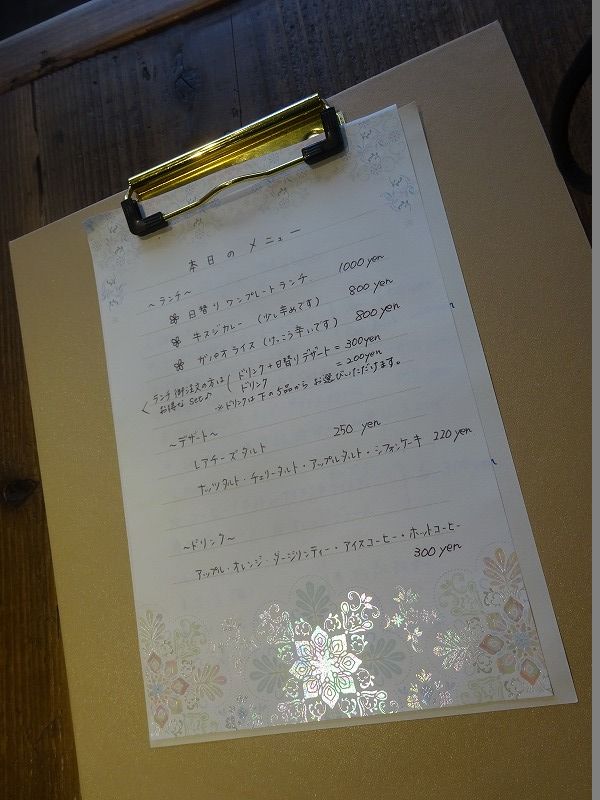 本日のメニュー
～ランチ～
日替りワンプレートランチ 1000 yen
牛スジカレー (少し辛めです) 800 yen
ガパオライス (けっこう辛いです) 800 yen
ランチ御注文の方は ( ドリンク+日替りデザート = 300yen
お得な set♪ ( ドリンク = 200yen
※ドリンクは下の5品からお選びいただけます。
～デザート～
レアチーズタルト 250 yen
ナッツタルト・チェリータルト・アップルタルト・シフォンケーキ 220 yen
～ドリンク～
アップル・オレンジ・ダージリンティー・アイスコーヒー・ホットコーヒー
300 yen